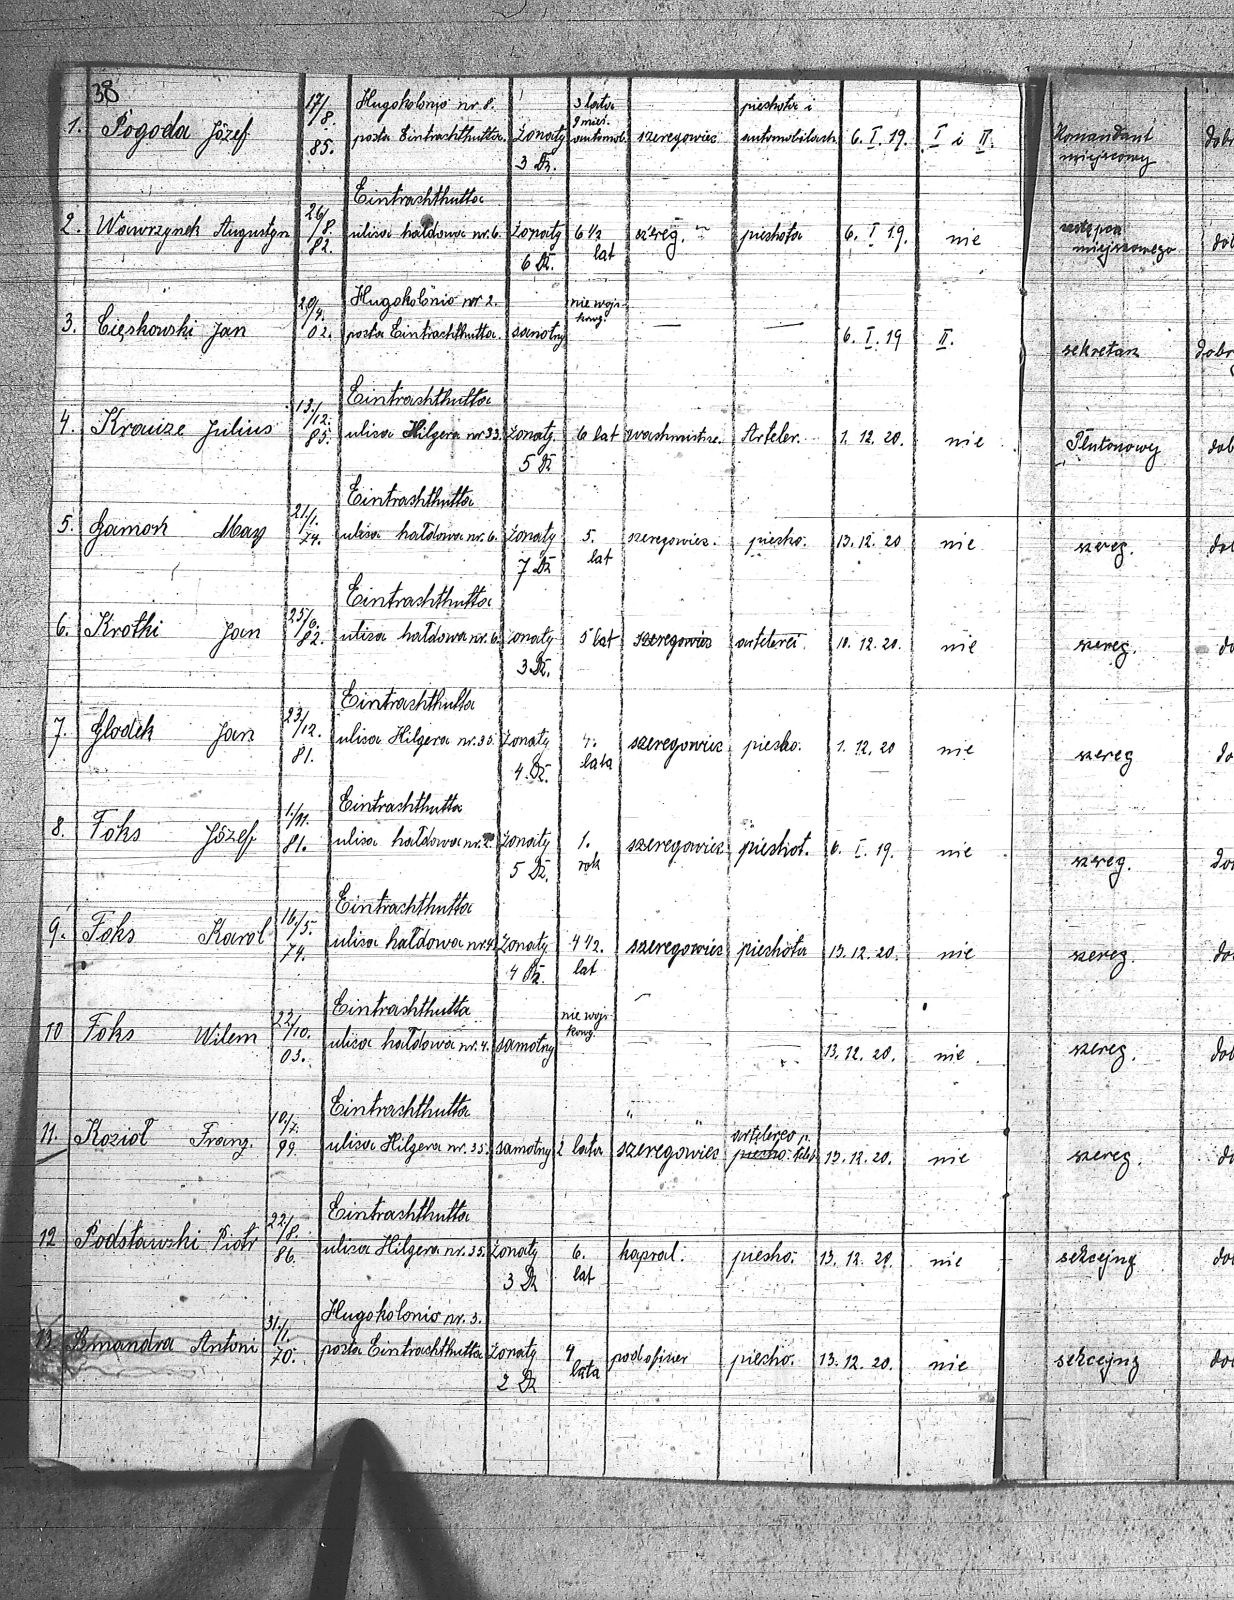 38
1. Pogoda Józef 17/8. 85. Hugokolonio nr. 8. posta Eintrachthutta. żonaty 3 Dz. 3 lata 9 mies. automob. szeregowiec piechota i automobilach 6. I. 19. I i II. Komendant miejscowy
2. Wawrzynek Augustyn 26/8. 82. Eintrachthutta ulica hałdowa nr. 6. żonaty 6 Dz. 6 1/2 lat szereg. piechota 6. I 19. nie zastępca miejscowego
3. Cięskowski Jan 20/4. 02. Hugokolonio nr 2. posta Eintrachthutta. samotny nie wojskowy. — — 6. I. 19 II. sekretarz
4. Krauze Julius 13/12. 85. Eintrachthutta ulica Hilgera nr 33. żonaty. 5 Dz 6 lat wachmistrz. Arteler. 1. 12. 20. nie Plutonowy
5. Gamoń Max 21/1. 74. Eintrachthutta ulica hałdowa nr. 6. żonaty 7 Dz 5. lat szeregowiec. piecho. 13. 12. 20 nie szereg.
6. Krotki Jan 25/6. 82. Eintrachthutta ulica hałdowa nr. 6. żonaty 3 Dz. 5 lat szeregowiec artelerei. 10. 12. 20. nie szereg.
7. Glodek Jan 23/12. 81. Eintrachthutta ulica Hilgera nr. 35. żonaty 4. Dz. 4. lata szeregowiec piecho. 1. 12. 20 nie szereg
8. Foks Józef 1./11. 81. Eintrachthutta ulica hałdowa nr. 2. żonaty 5 Dz. 1. rok szeregowiec piechot. 6. I. 19. nie szereg.
9. Foks Karol 16./5. 74. Eintrachthutta ulica hałdowa nr. 4. żonaty 4 Dz. 4 1/2. lat szeregowiec piechota 13. 12. 20. nie szereg.
10 Foks Wilem 22/10. 03. Eintrachthutta ulica hałdowa nr. 4. samotny nie wojskowy. — 13. 12. 20. nie. szereg.
11. Kozioł Franz. 10/7. 99. Eintrachthutta ulica Hilgera nr. 35. samotny 2 lata szeregowiec artelereo 13. 12. 20. nie szereg.
12 Podstawski Piotr 22/8. 86. Eintrachthutta ulica Hilgera nr. 35. żonaty 3 Dz 6. lat kapral. piecho. 13. 12. 20. nie sekcejny
13. Antoni 31./1. 70. Hugokolonio nr. 3. posta Eintrachthutta żonaty 2 Dz 4 lata podoficer piecho. 13. 12. 20. nie sekcejny